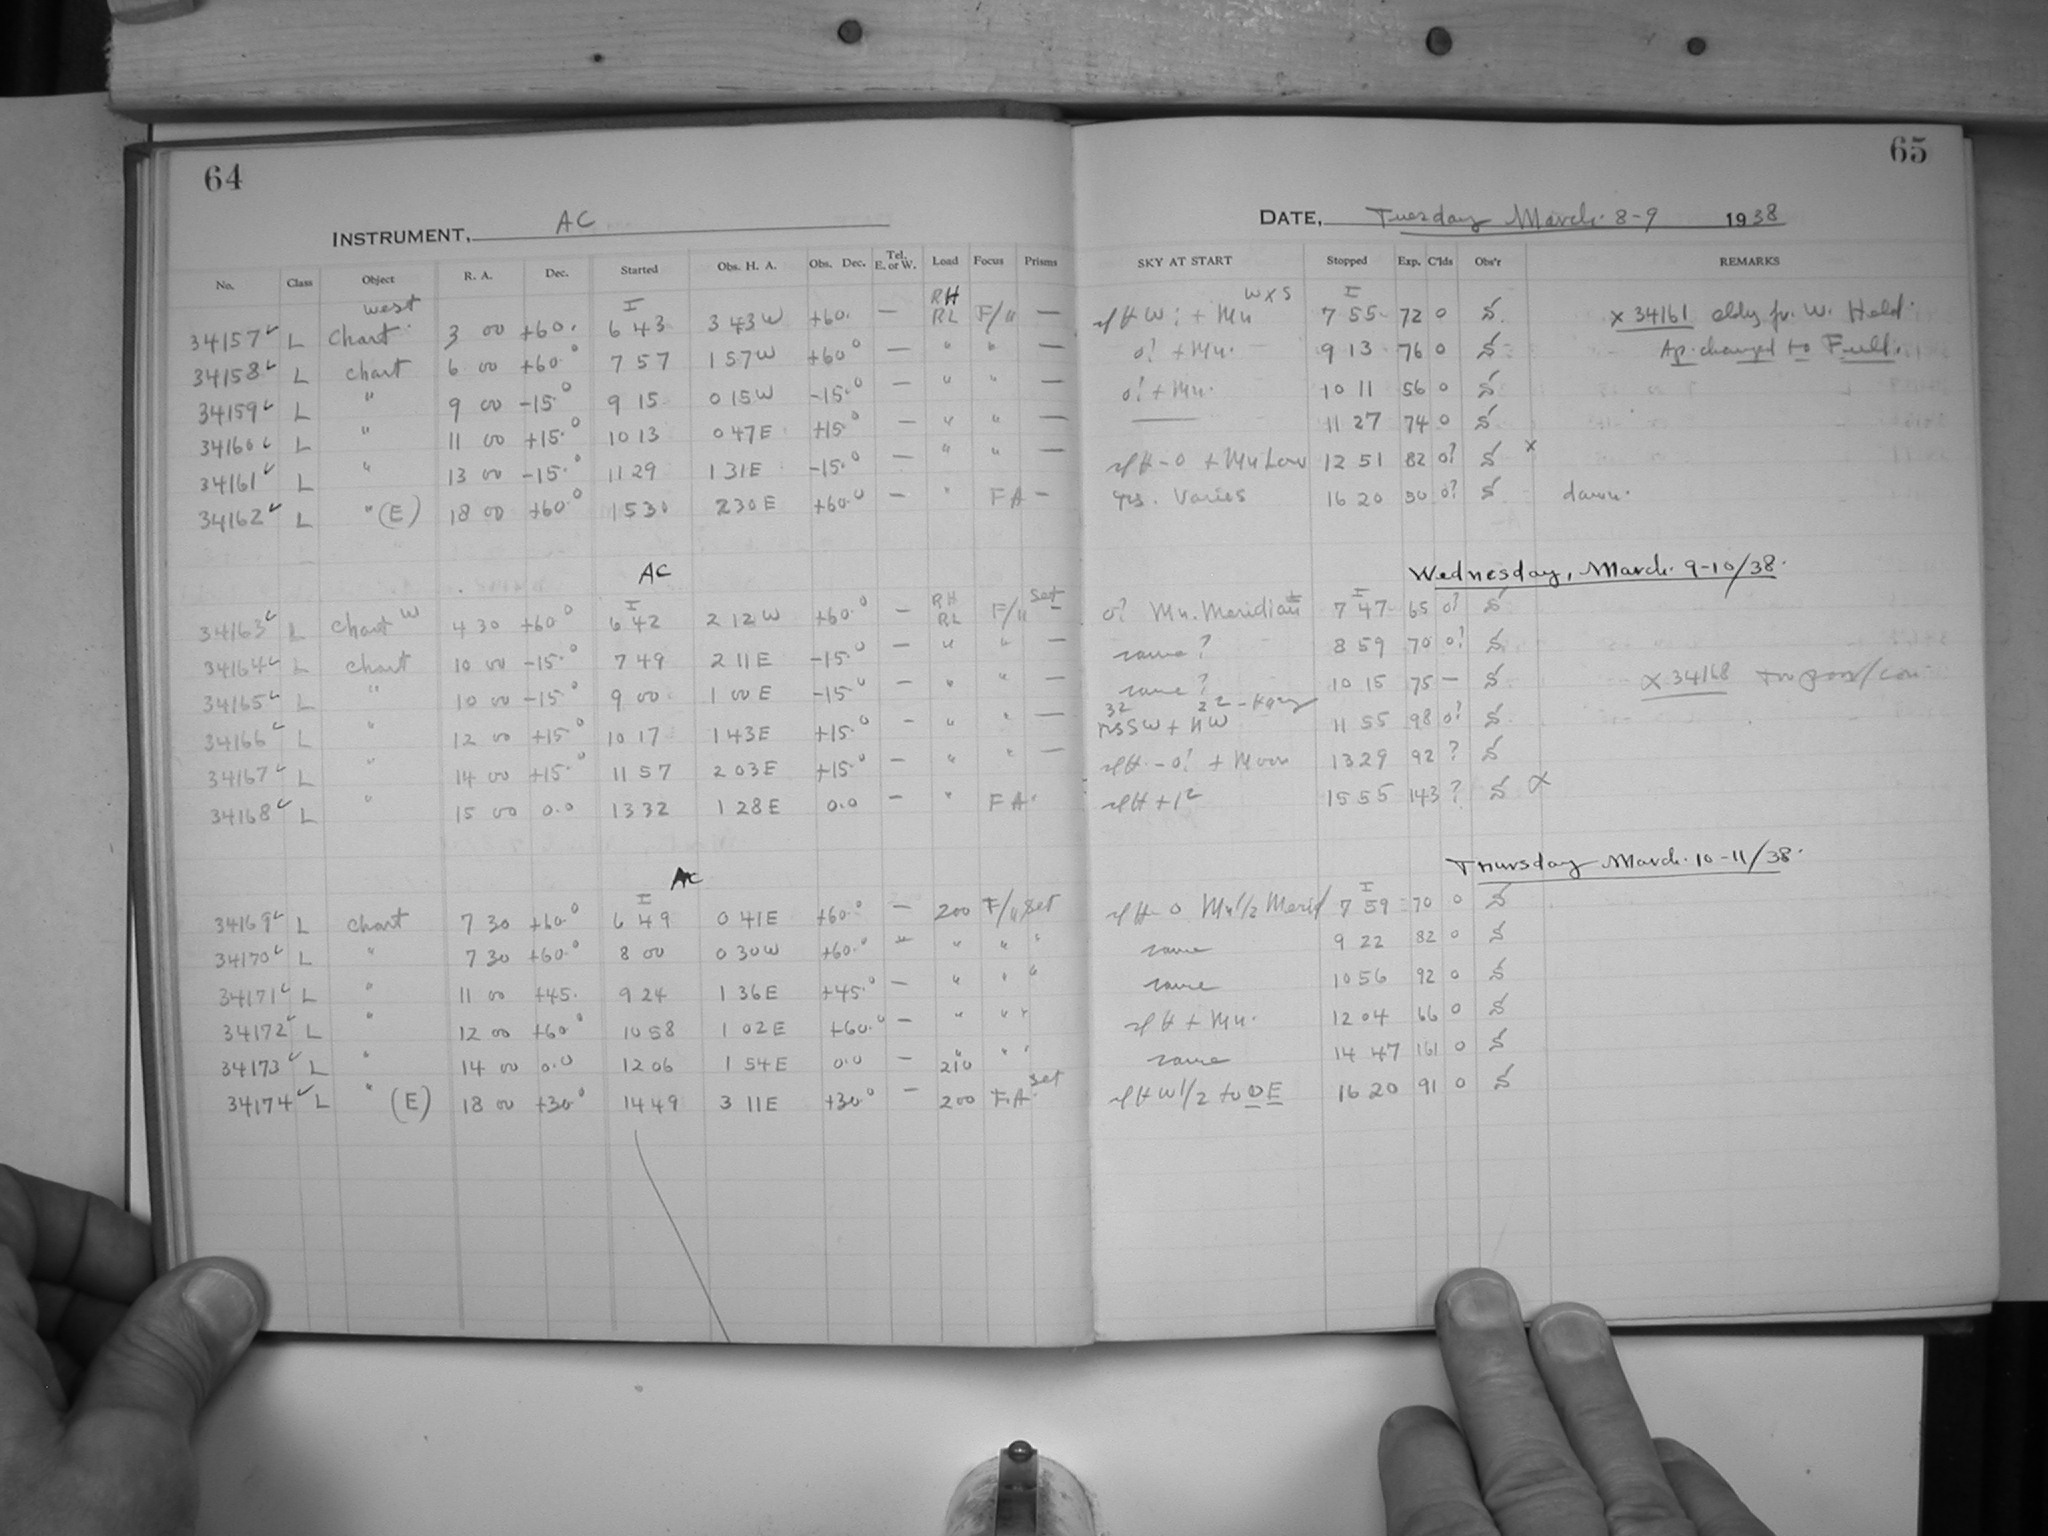 64
INSTRUMENT, AC
No. Class Object R. A. Dec. Started Obs. H. A. Obs. Dec. Tel. E. or W. Load Focus Prisms
west I RH
34157 L Chart 3 00 +60. 6 43 3 43 W +60. — RL F/11 —
34158 L chart 6 00 +60.0 7 57 1 57 W +60.0 — " " —
34159 L " 9 00 -15.0 9 15 0 15 W -15.0 — " " —
34160 L " 11 00 +15.0 10 13 0 47 E +15.0 — " " —
34161 L " 13 00 -15.0 11 29 1 31 E -15.0 — " " —
34162 L " (E) 18 00 +60.0 15 30 2 30 E +60.0 — " FA —
AC
I RH set
34163 L Chart W 4 30 +60.0 6 42 2 12 W +60.0 — RL F/11 —
34164 L chart 10 00 -15.0 7 49 2 11 E -15.0 — " " —
34165 L " 10 00 -15.0 9 00 1 00 E -15.0 — " " —
34166 L " 12 00 +15.0 10 17 1 43 E +15.0 — " " —
34167 L " 14 00 +15.0 11 57 2 03 E +15.0 — " " —
34168 L " 15 00 0.0 13 32 1 28 E 0.0 — " FA
AC
I
34169 L chart 7 30 +60.0 6 49 0 41 E +60.0 — 200 F/11 set
34170 L " 7 30 +60.0 8 00 0 30 W +60.0 " " " "
34171 L " 11 00 +45. 9 24 1 36 E +45.0 — " " "
34172 L " 12 00 +60.0 10 58 1 02 E +60.0 — " " "
34173 L " 14 00 0.0 12 06 1 54 E 0.0 — 210 " "
34174 L " (E) 18 00 +30.0 14 49 3 11 E +30.0 — 200 FA set
65
DATE, Tuesday March 8-9 1938
SKY AT START Stopped Exp. C'lds Obs'r REMARKS
W X S I
W + Mn 7 55 72 0 x 34161 cldy fr. W. Held
0? + Mn. 9 13 76 0 Ap. changed to Full.
0? + Mn. 10 11 56 0
— 11 27 74 0
-0 + Mn Low 12 51 82 0? x
Varies 16 20 50 0? dawn.
Wednesday, March 9-10/38.
I
0? Mn. Meridian 7 47 65 0?
same? 8 59 70 0?
same? 10 15 75 — x 34168
+ NW 11 55 98 0?
-0? + Moon 13 29 92 ?
15 55 143 ? x
Thursday March 10-11/38.
I
-0 Mn 1/2 Merid 7 59 70 0
same 9 22 82 0
same 10 56 92 0
+ Mn. 12 04 66 0
same 14 47 161 0
W 1/2 to 0 E 16 20 91 0